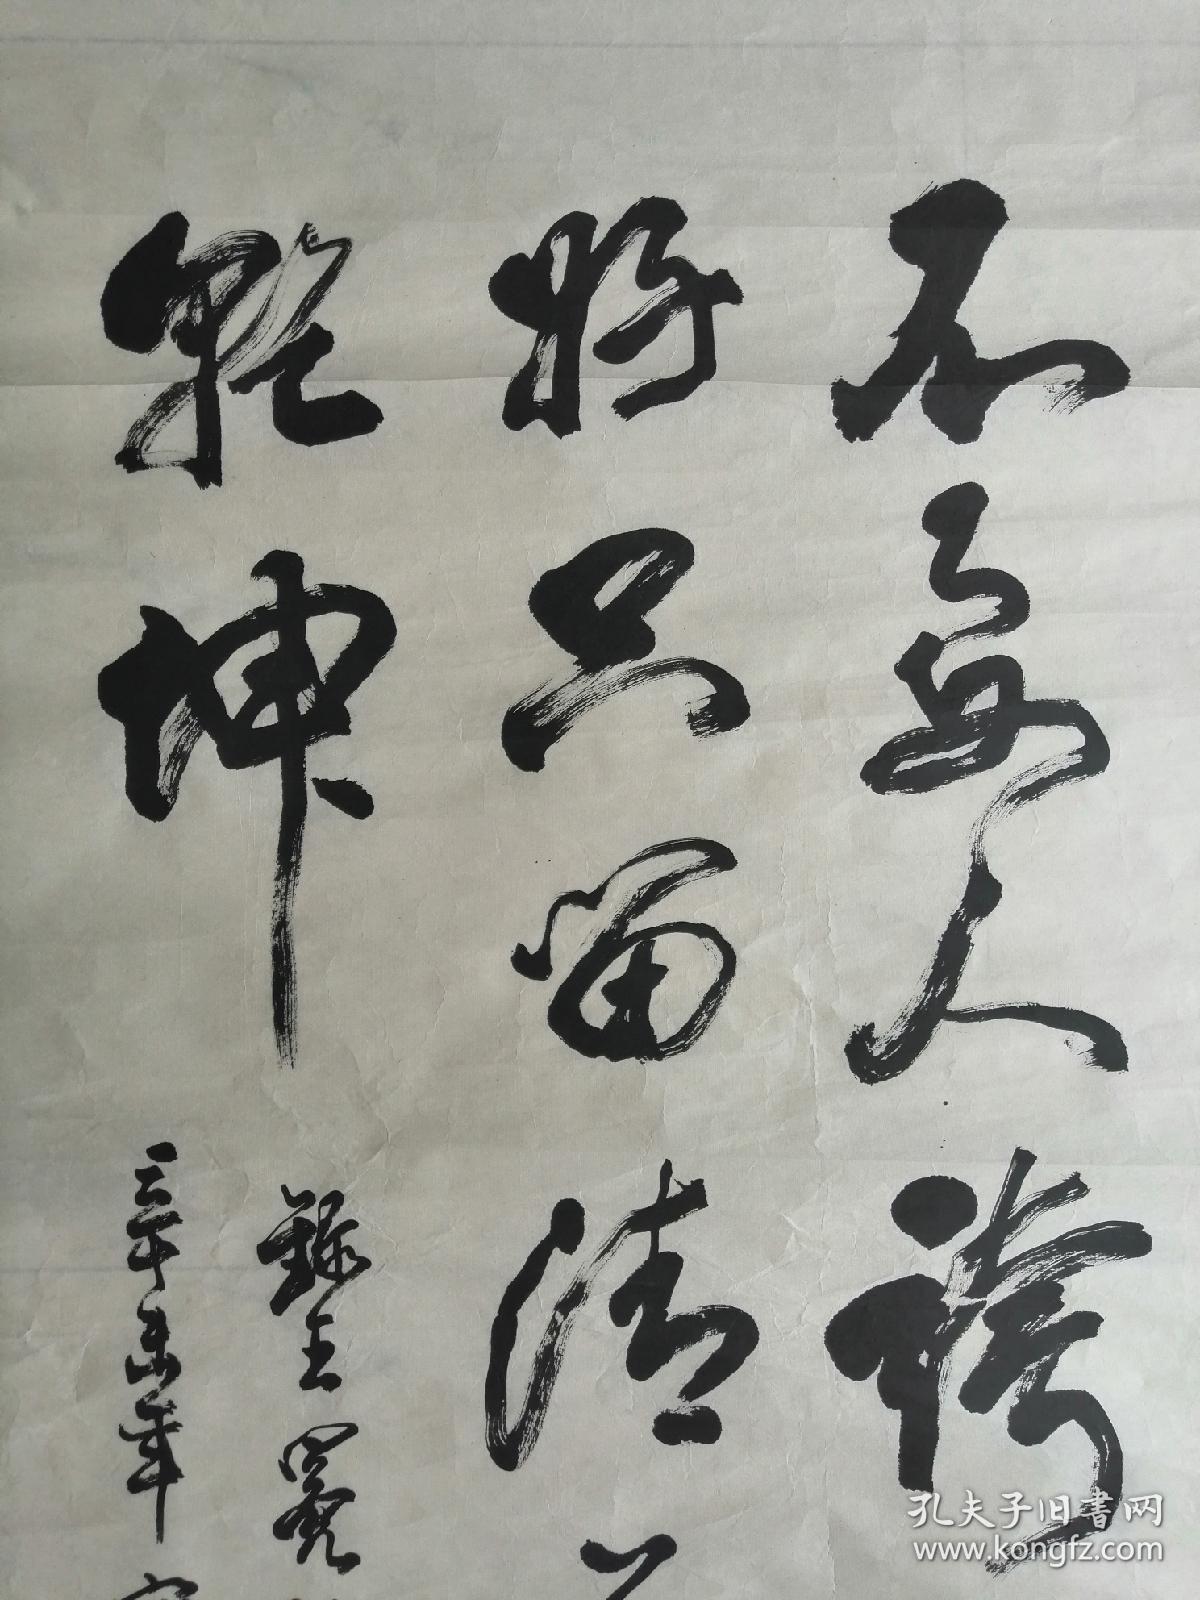 不要人誇
好只留清
乾坤
錄王冕
辛未年
孔夫子旧書网
www.kongfz.com